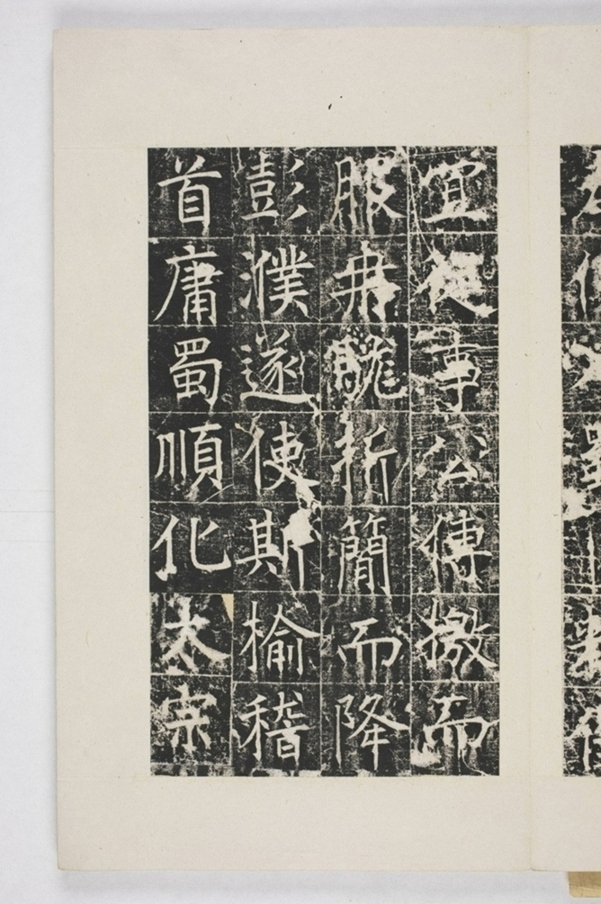 宜從事公傅檄而
服冉駹折簡而降
彭濮遂使斯榆稽
首庸蜀順化太宗